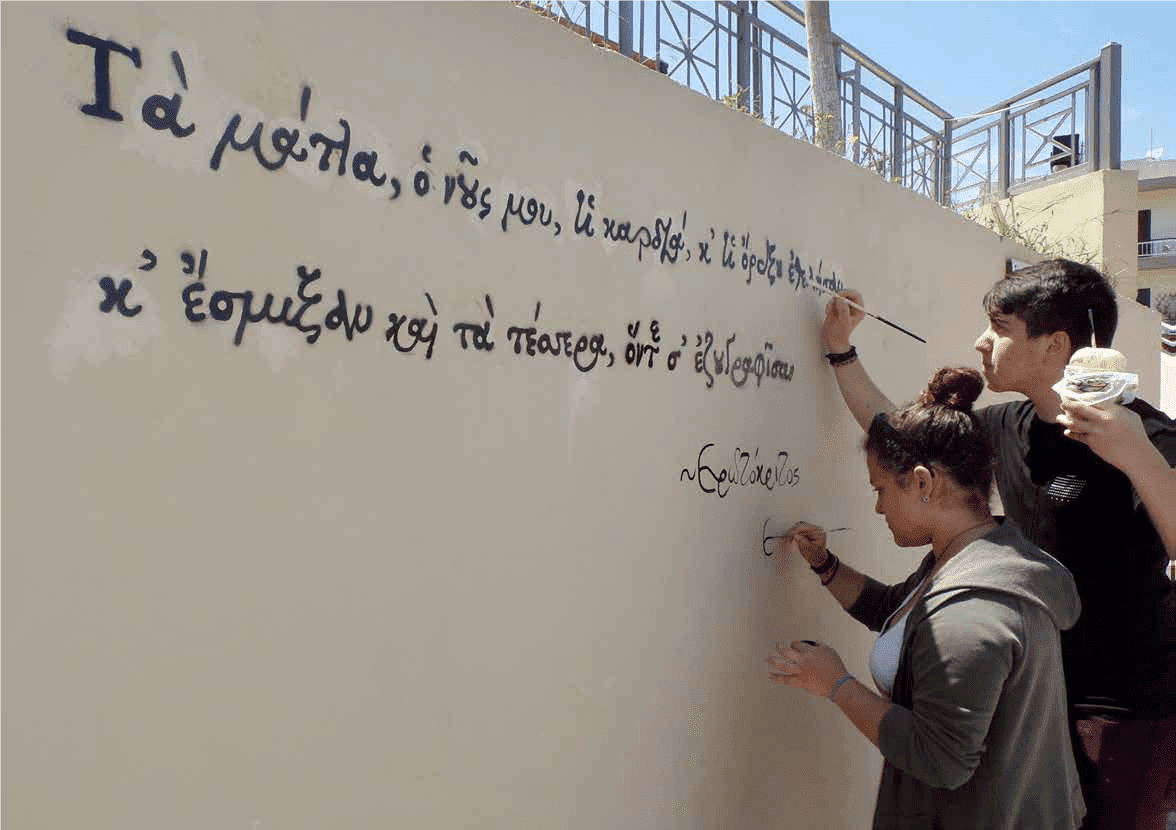 Τὰ μάτια, ὁ νοῦς μου, κἰ καρδιά, κ' ἰ ὄρεξη
κ' ἔσμιξαν καὶ τὰ τέσσερα, ὄντε σ' ἐζωγραφῖσαν
~Ερωτόκριτος